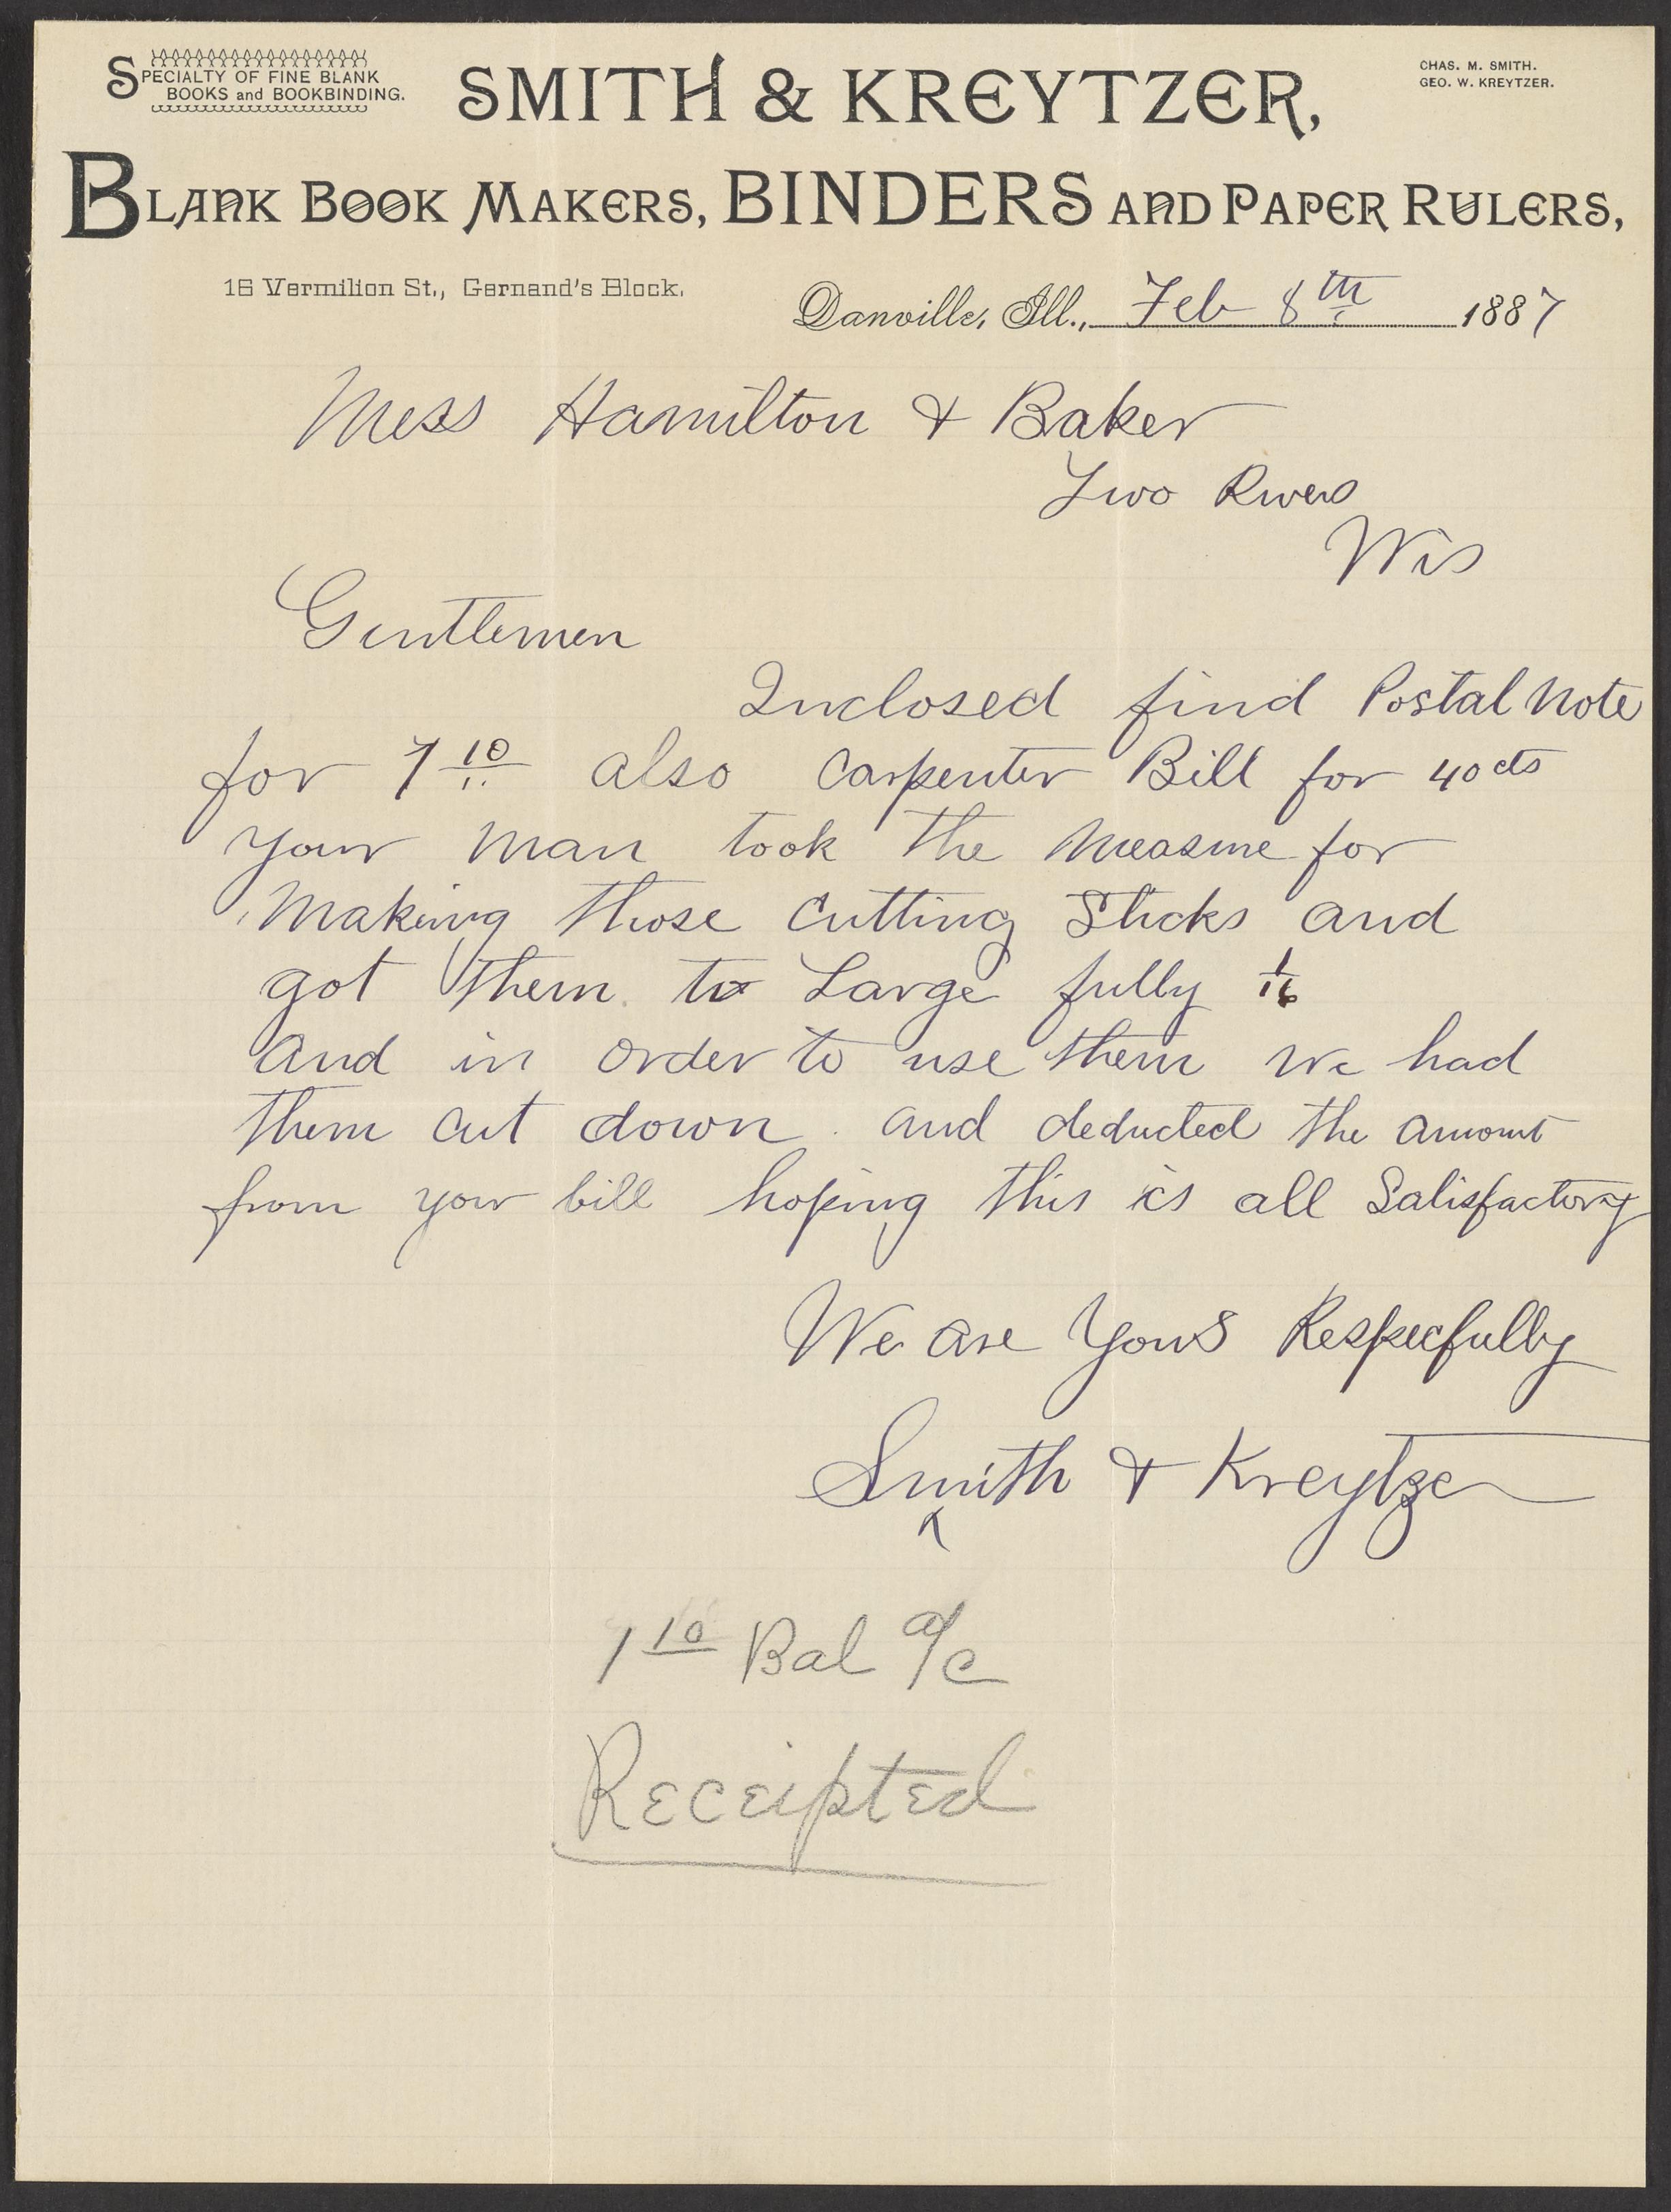 SPECIALTY OF FINE BLANK
BOOKS and BOOKBINDING.
SMITH & KREYTZER,
CHAS. M. SMITH.
GEO. W. KREYTZER.
BLANK BOOK MAKERS, BINDERS AND PAPER RULERS,
16 Vermilion St., Gernand's Block.
Danville, Ill., Feb 8th 1887
Mess Hamilton & Baker
Two Rivers
Wis
Gentlemen
Inclosed find Postal Note
for 1 10/.. also Carpenter Bill for 40 cts
your man took the measure for
Making those Cutting Sticks and
got them to Large fully 1/16
And in order to use them we had
them cut down. and deducted the amount
from your bill hoping this is all Satisfactory
We are Yours Respecfully
Smith & Kreytzer
1 10 Bal a/c
Receipted